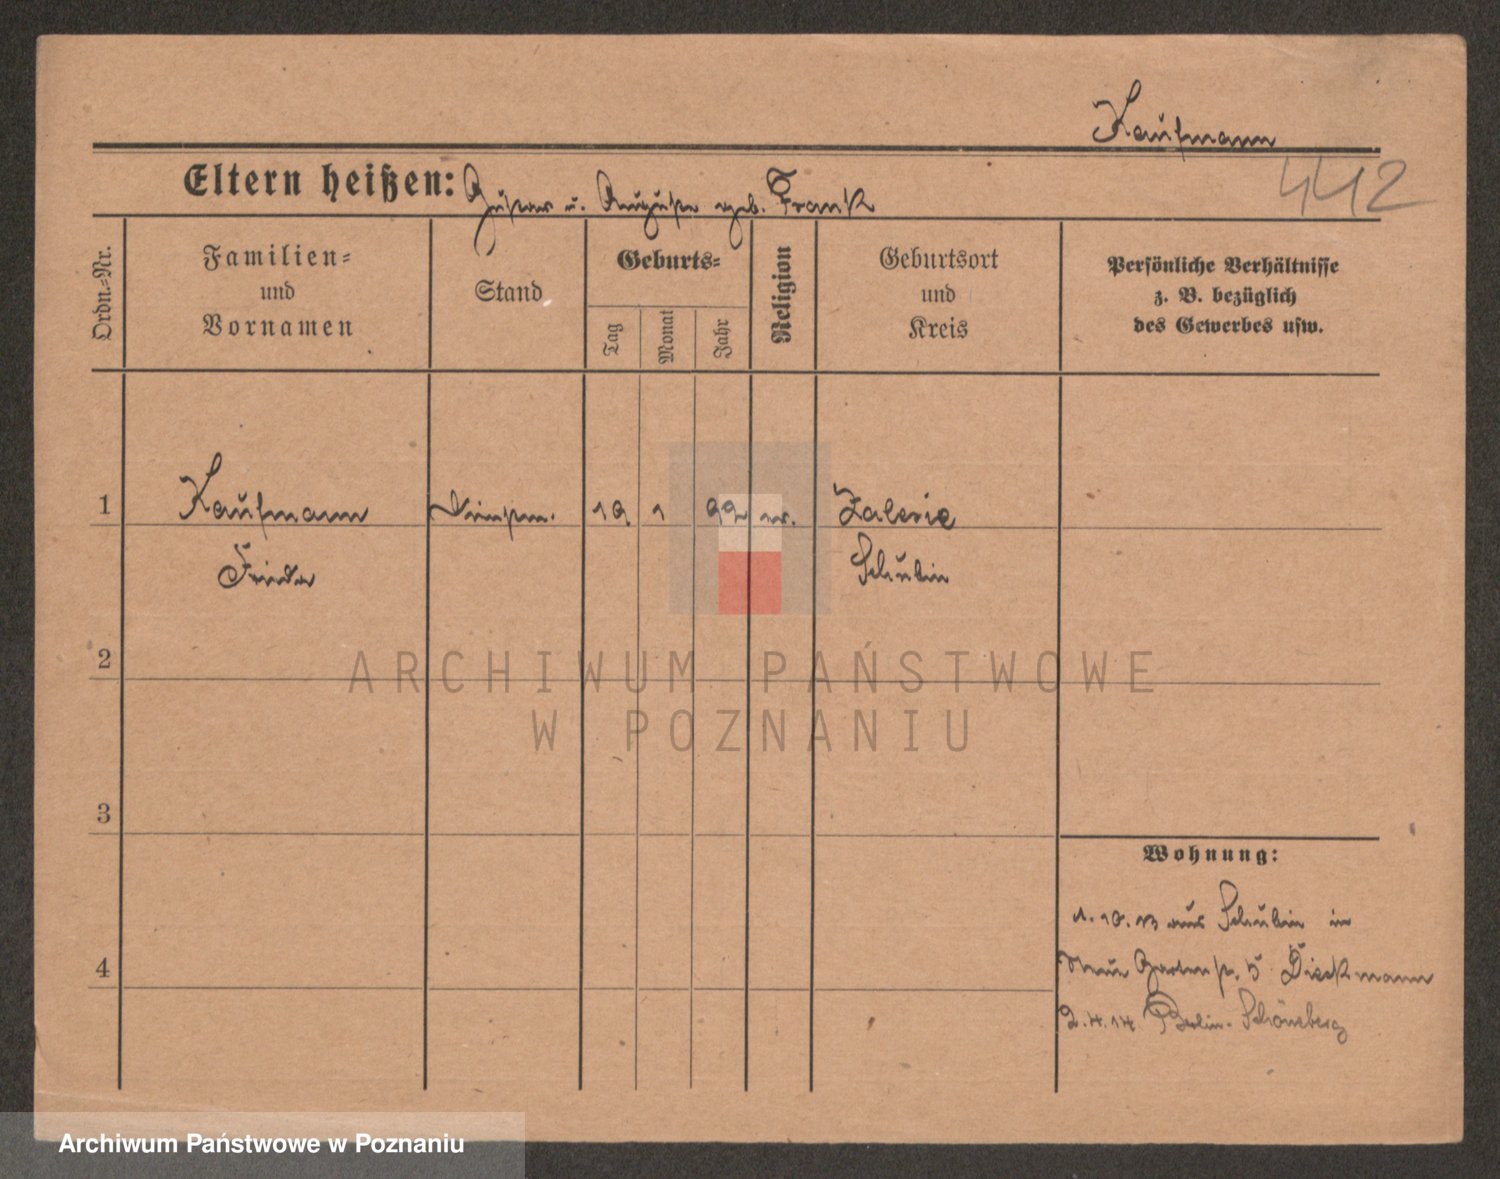 Kaufmann
442
Eltern heißen: Gustav u. Auguste geb. Frank
Ordn.-Nr.
Familien-
und
Vornamen
Stand
Geburts-
Tag
Monat
Jahr
Religion
Geburtsort
und
Kreis
Persönliche Verhältnisse
z. B. bezüglich
des Gewerbes usw.
1 Kaufmann 19 1 92 ev. Zalesie
Frieda Schubin
2
3
4
Wohnung:
1.10.13 aus Schubin in
Neue Gartenstr. 5 Dieckmann
2.4.14 Berlin-Schöneberg
ARCHIWUM PAŃSTWOWE
W POZNANIU
Archiwum Państwowe w Poznaniu